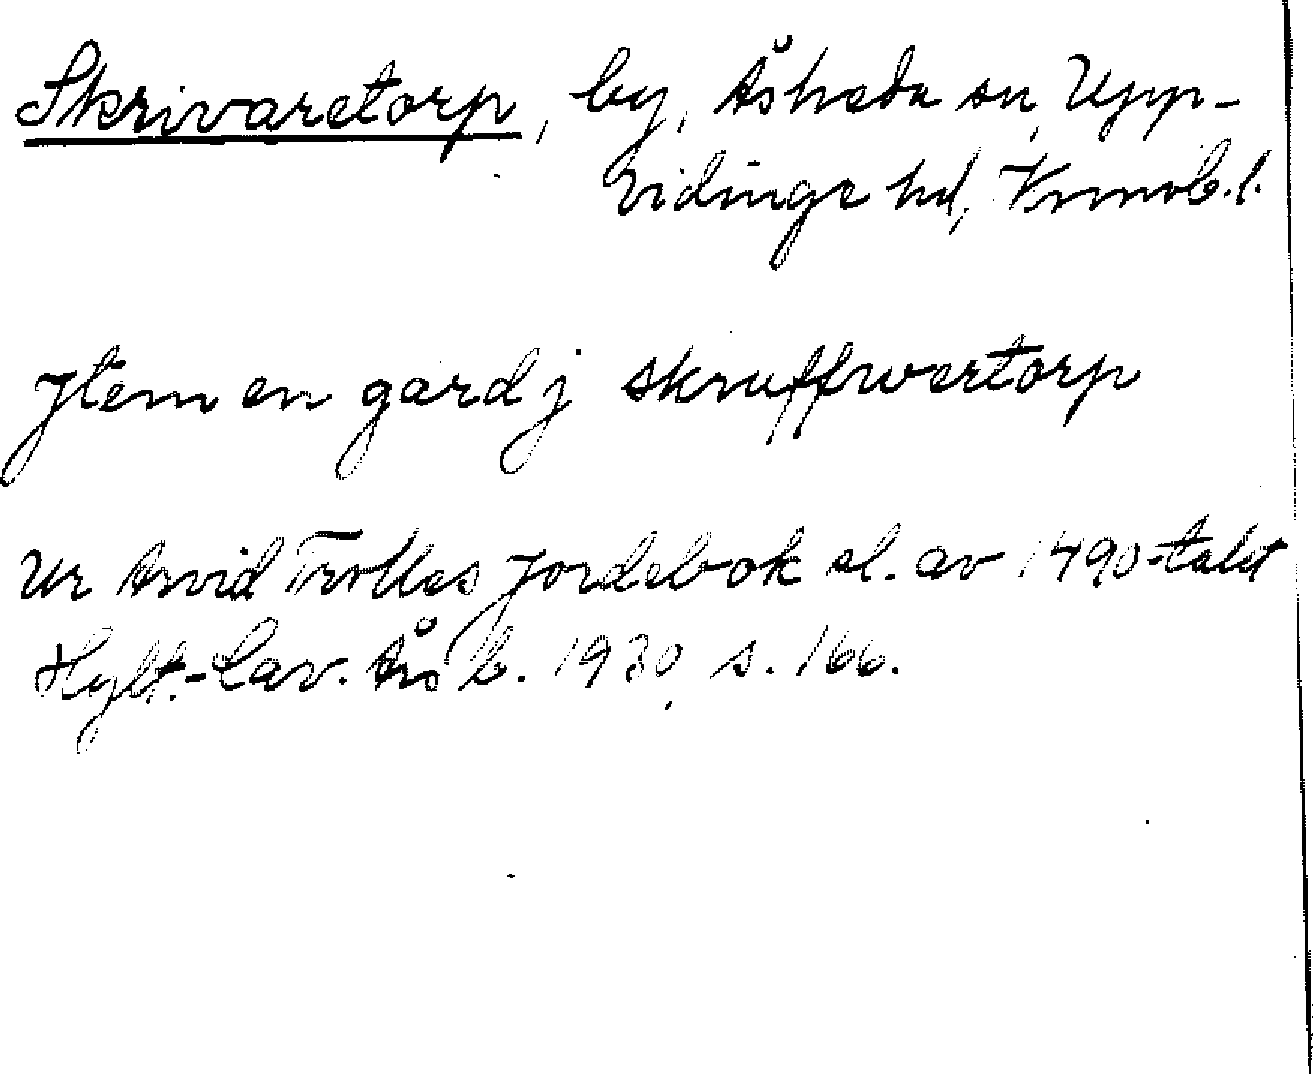 Skrivaretorp, by, Åsheda sn, Upp-
vidinge hd, Kronob. l.
Jtem en gard j skruffwertorp
Ur Arvid Trolles Jordebok sl. av 1490-talet
Hylt.-Cav. Årsb. 1930, s. 166.